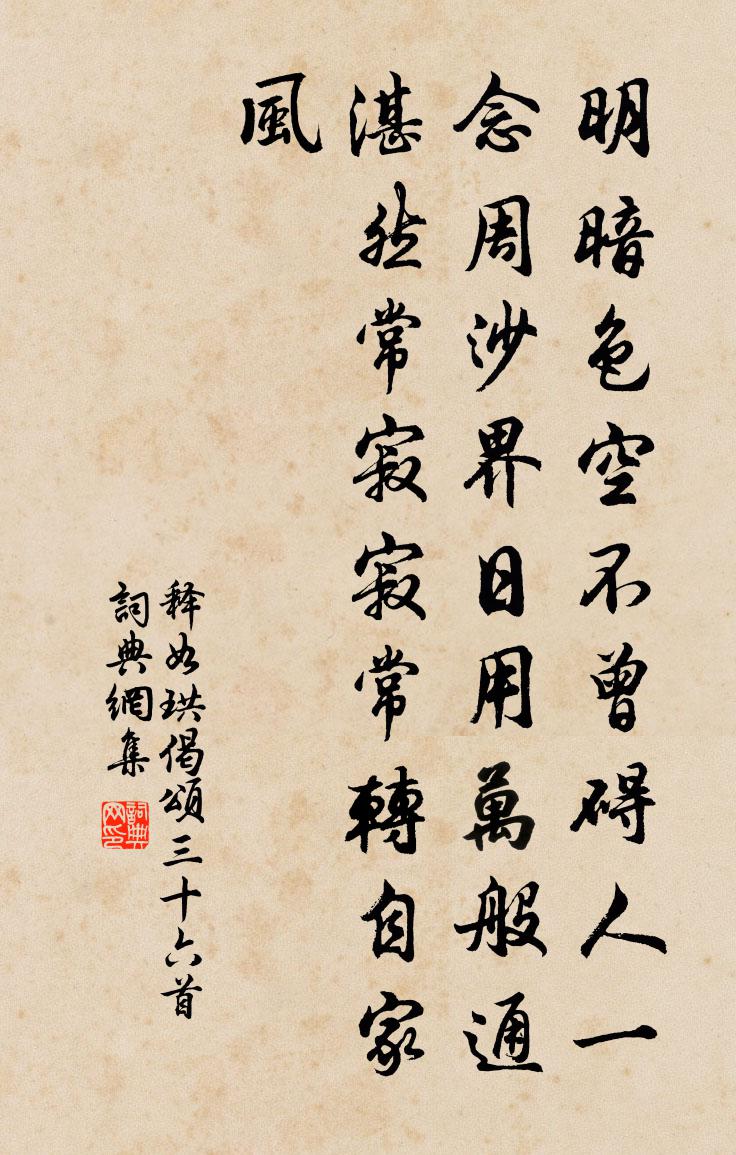 明暗色空不曾碍人一
念周沙界日用萬般通
湛然常寂寂常轉自家
風
释如珙偈頌三十六首
詞典網集
詞典网印